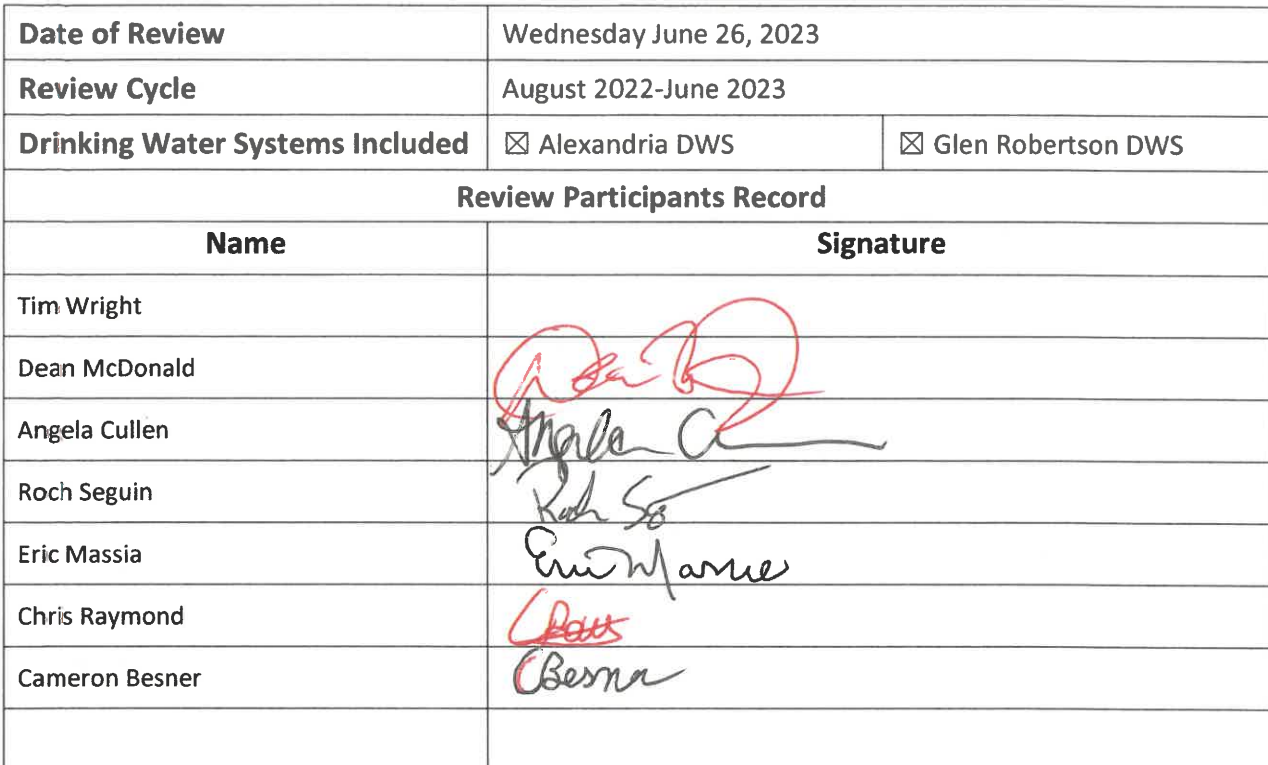 Date of Review Wednesday June 26, 2023
Review Cycle August 2022-June 2023
Drinking Water Systems Included ☒ Alexandria DWS ☒ Glen Robertson DWS
Review Participants Record
Name Signature
Tim Wright
Dean McDonald
Angela Cullen Angela C
Roch Seguin Roch
Eric Massia Eric Massie
Chris Raymond
Cameron Besner CBesner